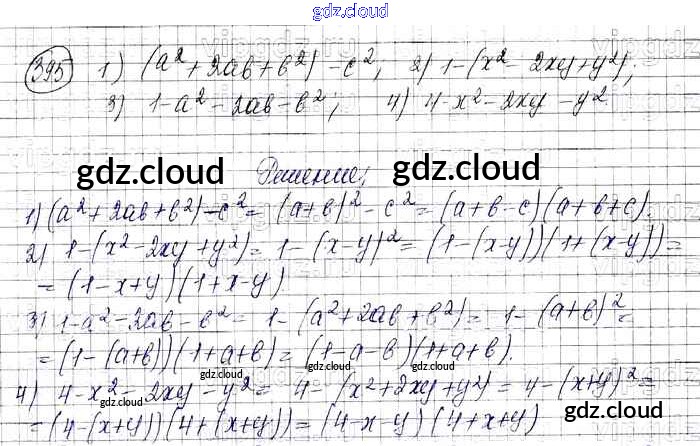 gdz.cloud
395 1) (a² + 2ab + b²) - c²; 2) 1-(x² - 2xy + y²);
3) 1-a² - 2ab - b²; 4) 4-x² - 2xy - y².
gdz.cloud Решение; gdz.cloud
1) (a² + 2ab + b²) - c² = (a+b)² - c² = (a+b-c)(a+b+c).
2) 1-(x² - 2xy + y²) = 1-(x-y)² = (1-(x-y))(1+(x-y)) =
= (1-x+y)(1+x-y).
3) 1-a² - 2ab - b² = 1-(a² + 2ab + b²) = 1-(a+b)² =
= (1-(a+b))(1+a+b) = (1-a-b)(1+a+b).
gdz.cloud gdz.cloud
4) 4-x² - 2xy - y² = 4-(x² + 2xy + y²) = 4-(x+y)² =
gdz.cloud gdz.cloud gdz.cloud
= (4-(x+y))(4+(x+y)) = (4-x-y)(4+x+y)